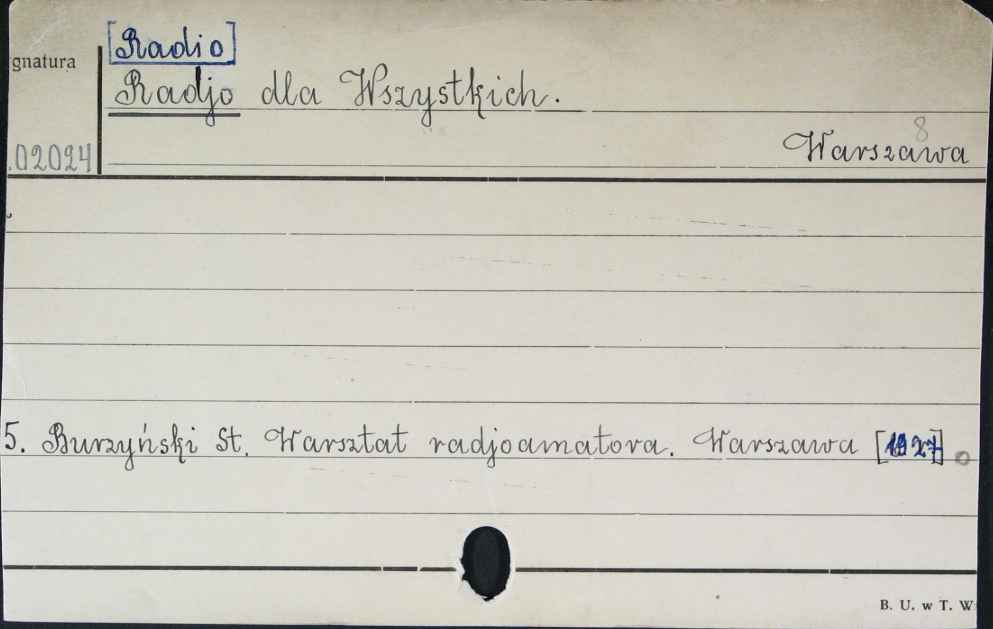 [Radio]
gnatura
Radjo dla Wszystkich.
8
.02024
Warszawa
5. Burzyński St. Warsztat radjoamatora. Warszawa [1927]
B. U. w T. W